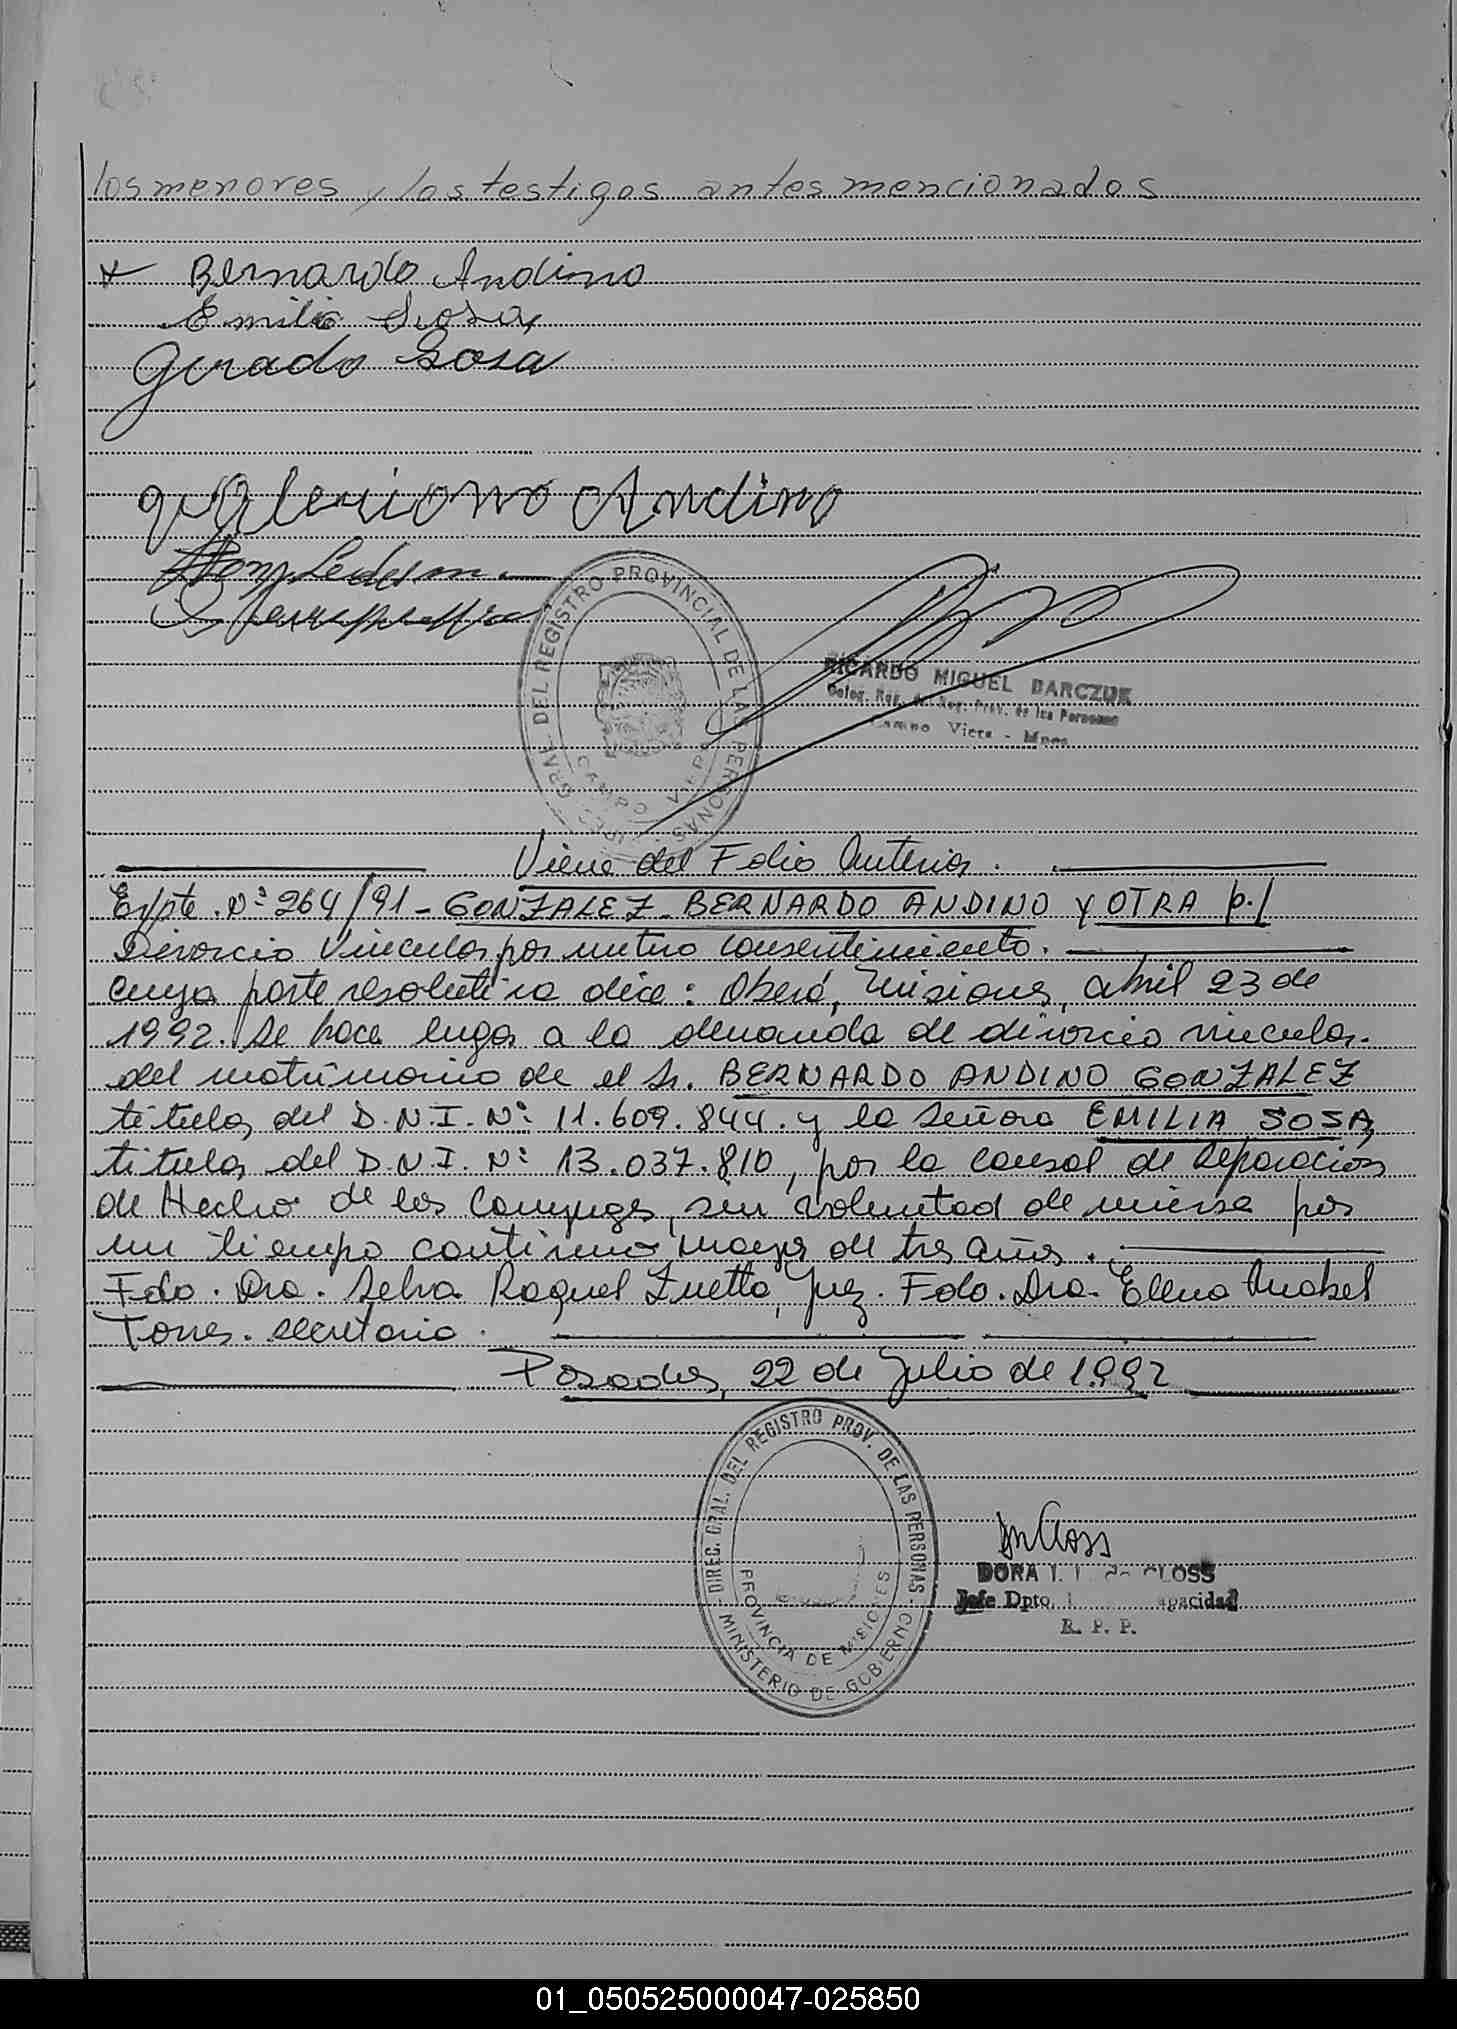 los menores y los testigos antes mencionados
x Bernardo Andino
Emilia Sosa
Gerardo Sosa
Andino
Ledesma
DEL REGISTRO PROVINCIAL DE LAS PERSONAS
CAMPO VIERA
RICARDO MIGUEL BARCZUK
Deleg. Reg. del Reg. Prov. de las Personas
Campo Viera - Mnes
Viene del Folio Anterior.
Expte. Nº 264/91 - GONZALEZ BERNARDO ANDINO Y OTRA p./
Divorcio Vincular por mutuo consentimiento.
cuya parte resolutiva dice: Oberá, Misiones, abril 23 de
1992. Se hace lugar a la demanda de divorcio vincular
del matrimonio de el Sr. BERNARDO ANDINO GONZALEZ
titular del D.N.I. Nº 11.609.844. y la señora EMILIA SOSA,
titular del D.N.I. Nº 13.037.810, por la causal de Separación
de Hecho de los Conyuges, sin voluntad de unirse por
un tiempo continuo mayor de tres años.
Fdo. Dra. Selva Raquel Zuetta, Juez. Fdo. Dra. Elena Anabel
Torres. secretaria.
Posadas, 22 de Julio de 1992
DIREC. GRAL. DEL REGISTRO PROV. DE LAS PERSONAS
PROVINCIA DE MISIONES
MINISTERIO DE GOBIERNO
DORA CLOSS
Jefe Dpto.
R. P. P.
01_050525000047-025850